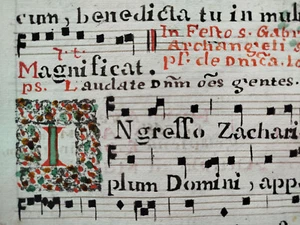 cum, benedicta tu in mul
In Festo s. Gabr
7. t.
Archangeli
Magnificat.
ps. de Dnica. La
ps. Laudate Dnm oēs gentes.
INgresso Zachari
plum Domini, appa